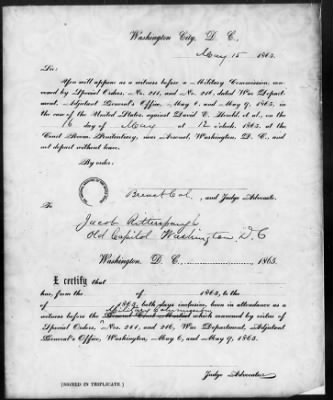 Washington City, D. C.,
May 15 1865.
Sir:
You will appear as a witness before a Military Commission, con-
vened by Special Orders, Nos. 211, and 216, dated War Depart-
ment, Adjutant General's Office, May 6, and May 9, 1865, in
the case of the United States, against David E. Herold, et al., on the
16 day of May at 12 o'clock, 1865, at the
Court Room, Penitentiary, near Arsenal, Washington, D. C., and
not depart without leave.
By order:
Brevet Col., and Judge Advocate.
To
Jacob Ritterspaugh
Old Capitol Washington D.C
Washington, D. C. 1865.
I certify that
has, from the of 1865, to the
of 1865, both days inclusive, been in attendance as a
Military Commission
witness before the General Court Martial which convened by virtue of
Special Orders, Nos. 211, and 216, War Department, Adjutant
General's Office, Washington, May 6, and May 9, 1865.
Judge Advocate.
[SIGNED IN TRIPLICATE.]